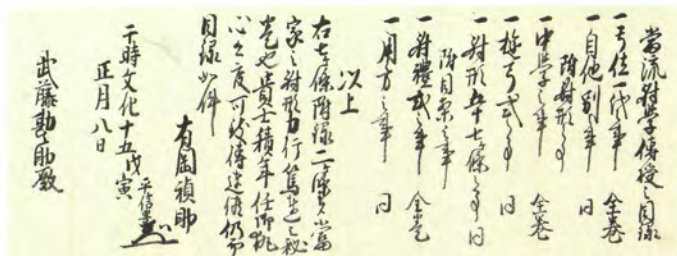 當流射學傳授之目録
一弓位一代事 全巻
一自他別之事 同
附射形之事
一中學之事 全巻
一遊弓式之事 同
一射形五十七條之事 同
附目案之事
一射禮式之事 全巻
一用方之事 同
以上
右七條附録二條者當
家之射形力行篤志之秘
巻也貴士積年任御執
心之度可致傳達候仍而
目録如件
有岡禎助
于時文化十五戊寅
正月八日
武藤勘助殿